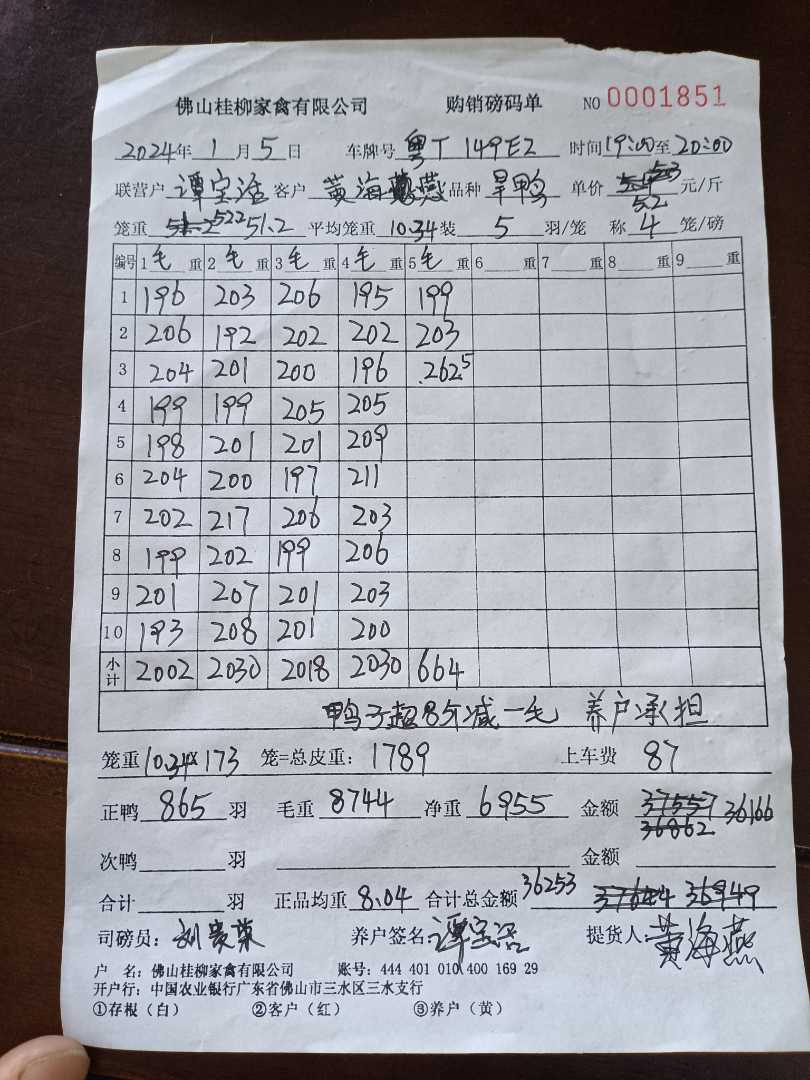 佛山桂柳家禽有限公司 购销磅码单 NO 0001851
2024年 1月5日 车牌号 粤T 149E2 时间19:00至20:00
联营户 谭宝洁 客户 黄海燕 品种 旱鸭 单价 53 元/斤
5.2
笼重 51.2 52.2 51.2 平均笼重 10.34 装 5 羽/笼 称 4 笼/磅
编号 1毛重 2毛重 3毛重 4毛重 5毛重 6重 7重 8重 9重
1 196 203 206 195 199
2 206 192 202 202 203
3 204 201 200 196 262.5
4 199 199 205 205
5 198 201 201 209
6 204 200 197 211
7 202 217 206 203
8 199 202 199 206
9 201 207 201 203
10 193 208 201 200
小计 2002 2030 2018 2030 664
鸭子超8斤减一毛 养户承担
笼重10.34×173 笼=总皮重: 1789 上车费 87
正鸭 865 羽 毛重 8744 净重 6955 金额 37557 36166
36862
次鸭 羽 金额
合计 羽 正品均重 8.04 合计总金额 36253 37644 36949
司磅员: 养户签名: 谭宝洁 提货人: 黄海燕
户 名: 佛山桂柳家禽有限公司 账号: 444 401 010 400 169 29
开户行: 中国农业银行广东省佛山市三水区三水支行
①存根(白) ②客户(红) ③养户(黄)